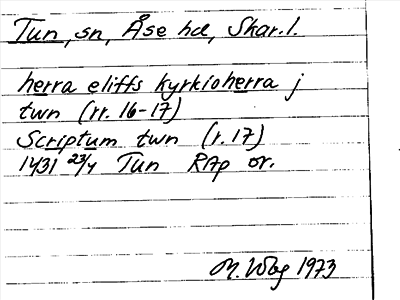 Tun, sn, Åse hd, Skar. l.
herra eliffs kyrkioherra j
twn (rr. 16-17)
Scriptum twn (r. 17)
1431 23/4 Tun RAp or.
M. Wbg 1973